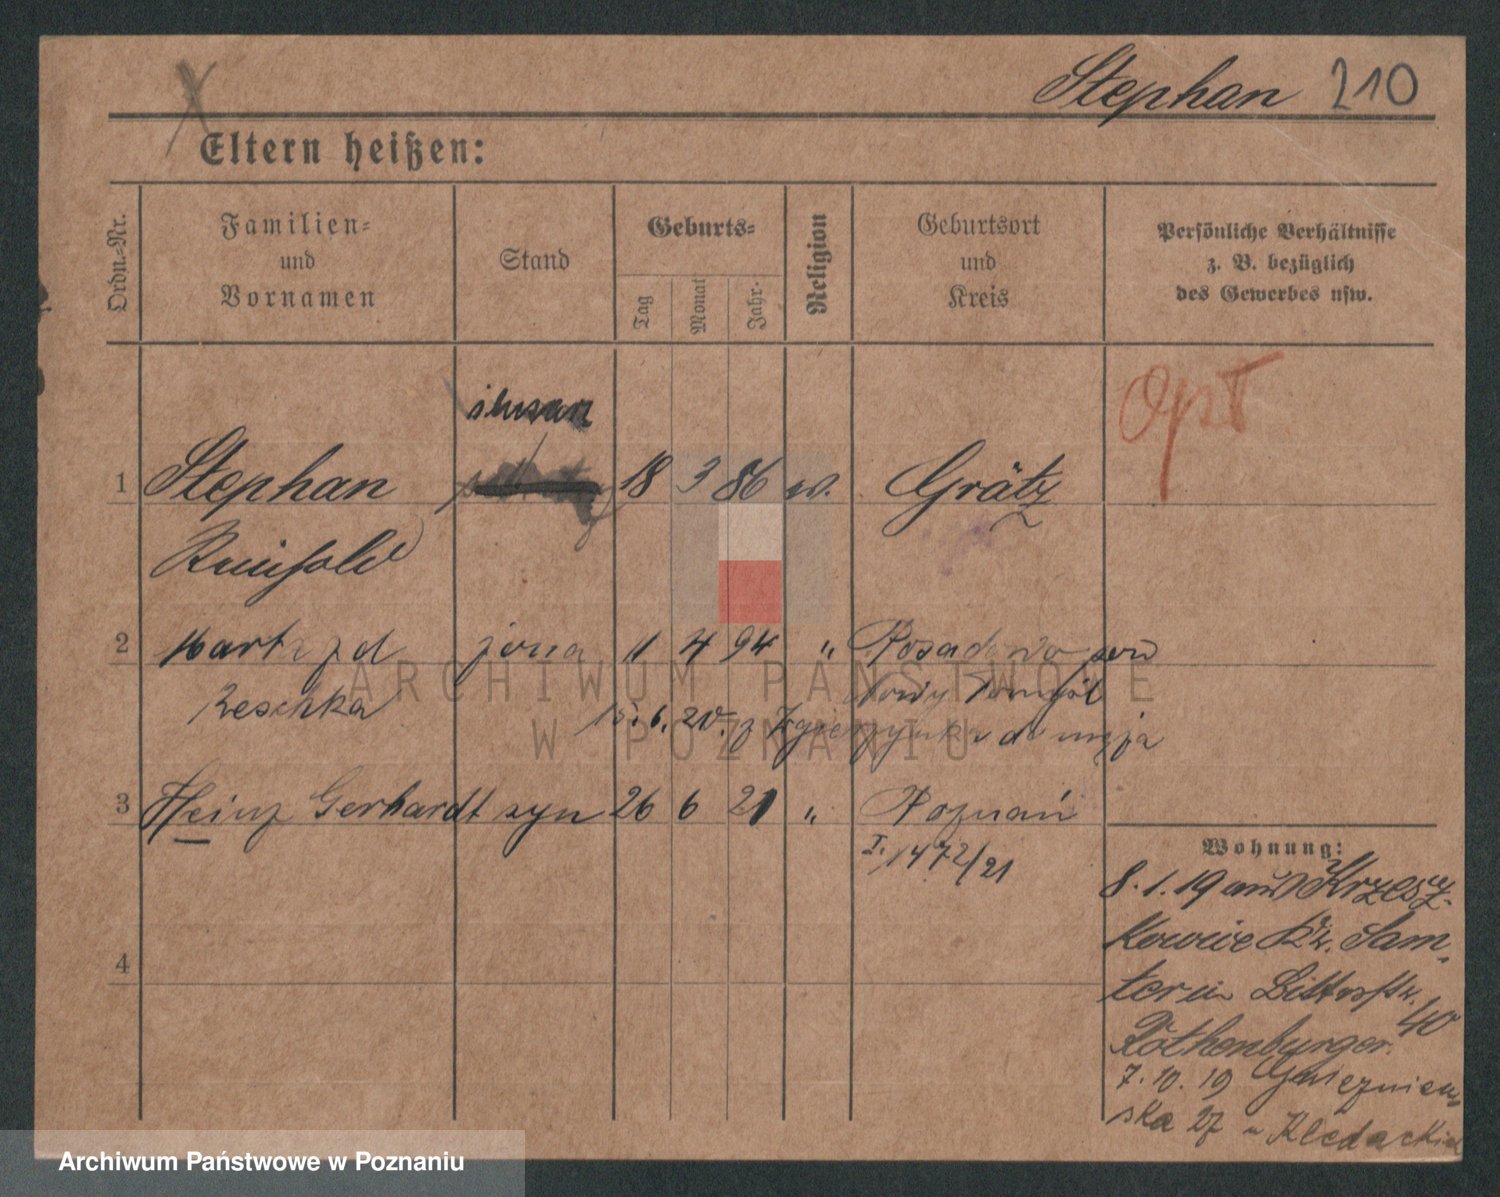 Stephan 210
Eltern heißen:
Ordn.-Nr.
Familien-
und
Vornamen
Stand
Geburts-
Tag
Monat
Jahr.
Religion
Geburtsort
und
Kreis
Persönliche Verhältnisse
z. B. bezüglich
des Gewerbes usw.
Opt
ślusarz
1 Stephan 18 3 86 ev. Grätz
Reinhold
2 Marta zd żona 11 4 94 " Posadowo pow
Zeschka Nowy Tomyśl
15. 6. 20. z do męża
3 Heinz Gerhardt syn 26 6 21 " Poznań
I. 1472/21
4
Wohnung:
8. 1. 19 aus Krzesz-
kowice Kr. Sam-
ter in
40
Rothenburger.
7. 10. 19 Gnieznien-
ska 27 u
ARCHIWUM PAŃSTWOWE
W POZNANIU
Archiwum Państwowe w Poznaniu